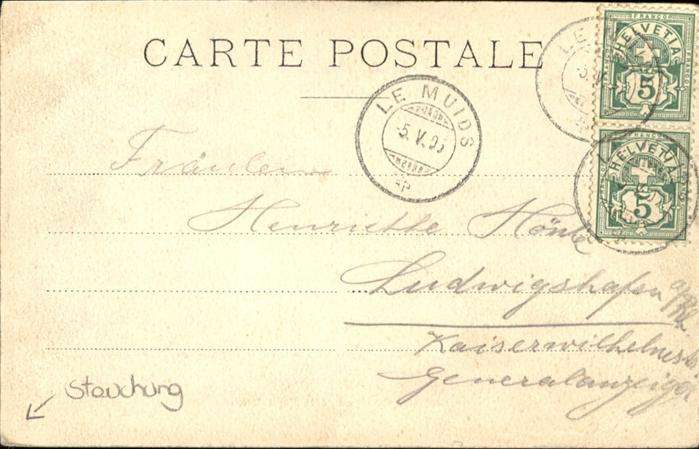 CARTE POSTALE
FRANCO
HELVETIA
5
FRANCO
HELVETIA
5
LE MUIDS
5.V.05
Fräulein
Henriette Höntze
Ludwigshafen a/Rh
Kaiserwilhelmstr.
Generalanzeiger
Stauchung